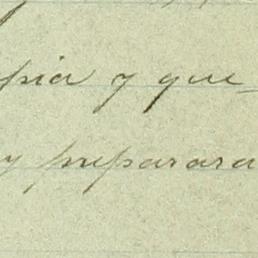 pia y que
y preparara